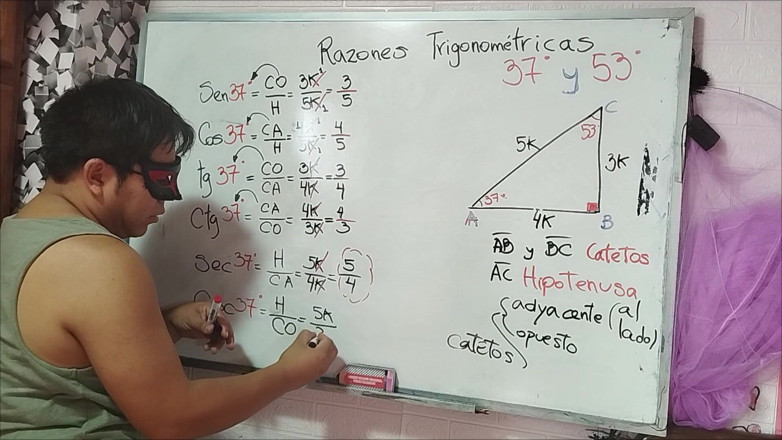 Razones Trigonométricas
37° y 53°
Sen37° = CO/H = 3K/5K = 3/5
Cos37° = CA/H = 4/5
tg 37° = CO/CA = 3K/4K = 3/4
Ctg37° = CA/CO = 4K/3K = 4/3
Sec37° = H/CA = 5K/4K = 5/4
37° = H/CO = 5K
C
53°
5K
3K
37°
A
4K
B
AB y BC Catetos
AC Hipotenusa
catetos
adyacente (al lado)
opuesto